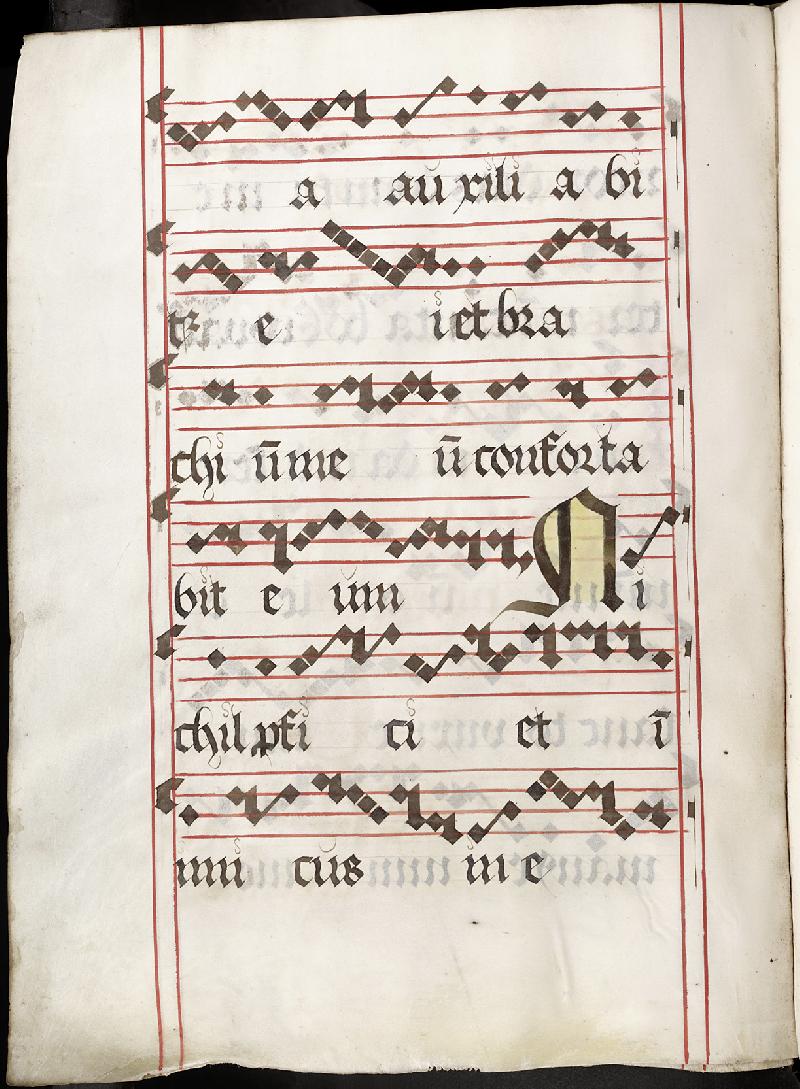 a auxili a bi
tʳ e i et bra
chi ū me ū conforta
bit e um Ni
chil ꝓfi ci et ī
imi cus in e